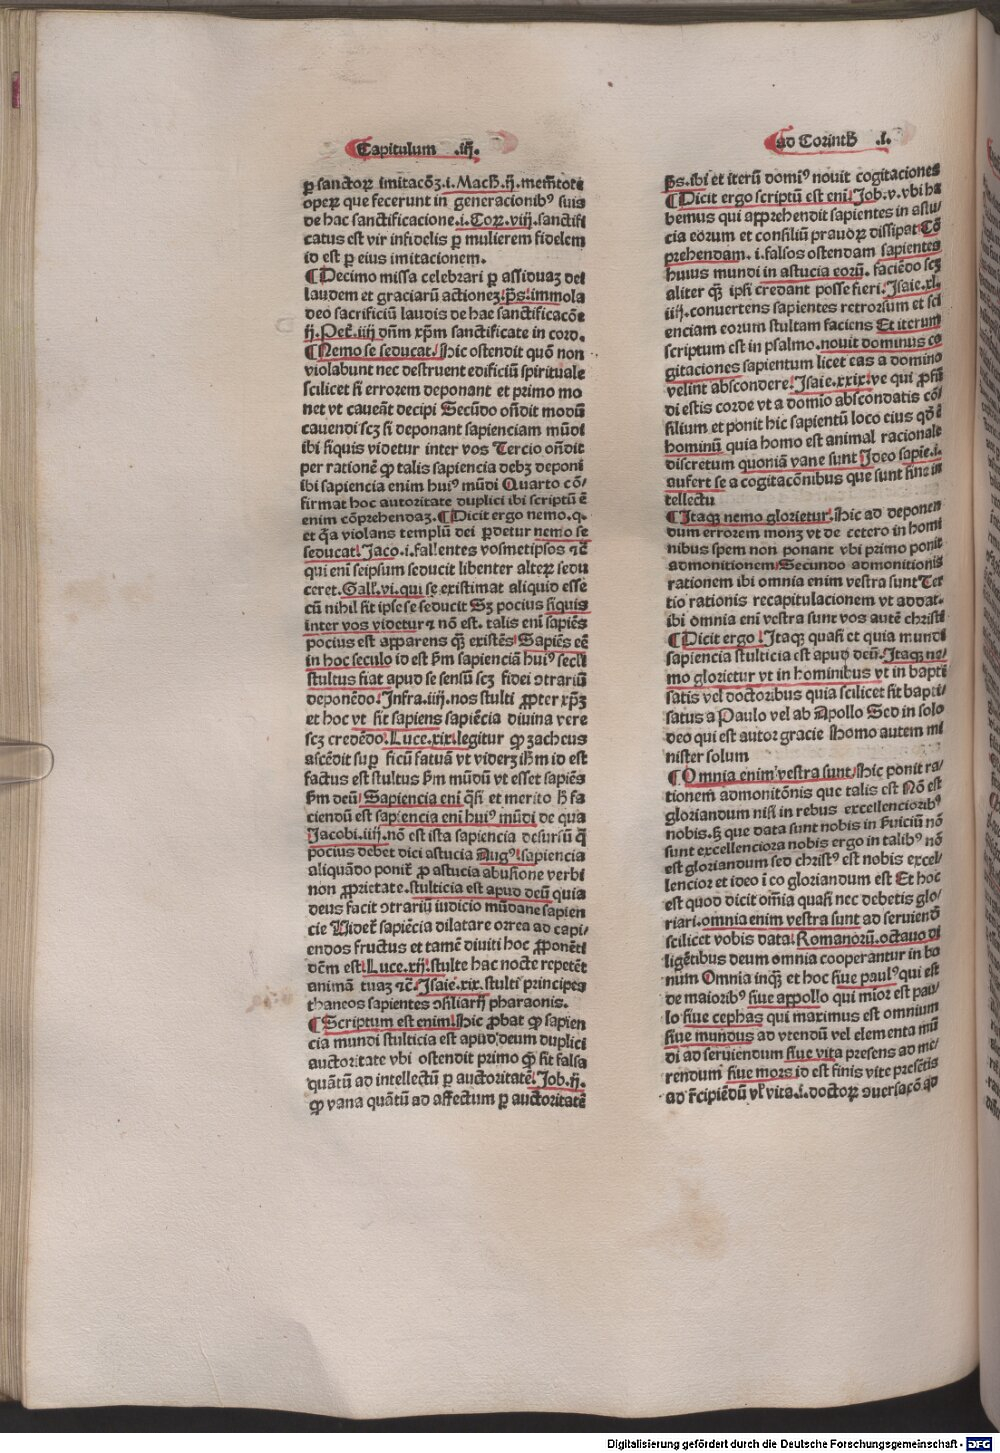 Capitulum .iij.
ad Corinth̄ .i.
ꝑ sanctoꝝ imitacōꝫ.i.Mach̄.ij.mem̄tote
operꝝ que fecerunt in generacionibꝰ suis
de hac sanctificacione.i.Coꝝ.viij.sanctifi
catus est vir infidelis ꝑ mulierem fidelem
id est ꝑ eius imitacionem.
¶Decimo missa celebrari ꝑ assiduaꝫ dei
laudem et graciarū actioneꝫ.p̄s.immola
deo sacrificiū laudis de hac sanctificacōe
ij.Pet̄.iiij dn̄m xp̄m sanctificate in cord.
¶Nemo se seducat.Hic ostendit quō non
violabunt nec destruent edificiū spirituale
scilicet si errorem deponant et primo mo
net vt caueāt decipi Secūdo on̄dit modū
cauendi scꝫ si deponant sapienciam mūdi
ibi siquis videtur inter vos Tercio on̄dit
per rationē ꝙ talis sapiencia debꝫ deponi
ibi sapiencia enim huiꝰ mūdi Quarto cō/
firmat hoc autoritate duplici ibi scriptū ē
enim cōprehendaꝫ.¶Dicit ergo nemo.q.
et q̄a violans templū dei ꝑdetur nemo se
seducat.Jaco.i.fallentes vosmetipsos ⁊c̄
qui eni seipsum seducit libenter alterꝝ sedu
ceret.Gall̄.vi.qui se existimat aliquid esse
cū nihil sit ipse se seducit Sꝫ pocius siquis
inter vos videtur ⁊ nō est. talis eni sapiēs
pocius est apparens q̄ꝫ existēs Sapiēs eē
in hoc seculo id est s̄m sapienciā huiꝰ secli
stultus fiat apud se sensū scꝫ fidei ɔtrariū
deponēdo.Jnfra.iiij.nos stulti ꝓpter xp̄ꝫ
et hoc vt sit sapiens sapiēcia diuina vere
scꝫ credēdo.Luce.xix.legitur ꝙ zacheus
ascēdit suꝑ ficū fatuā vt viderꝫ ih̄m id est
factus est stultus s̄m mūdū vt esset sapiēs
s̄m deū Sapiencia eni q̄si et merito h̄ fa
ciendū est sapiencia eni huiꝰ mūdi de qua
Jacobi.iiij.nō est ista sapiencia desursū q̄
pocius debet dici astucia Augꝰ sapiencia
aliquādo ponit̄ ꝓ astucia abusione verbi
non ꝓprietate.stulticia est apud deū quia
deus facit ɔtrariū iudicio mūdane sapien
cie Videt̄ sapiēcia dilatare orrea ad capi/
endos fructus et tamē diuiti hoc ꝓponēti
dc̄m est Luce.xij.stulte hac nocte repetēt
animā tuaꝫ ⁊c̄.Jsaie.xix.stulti principes
thaneos sapientes ɔsiliarij pharaonis.
¶Scriptum est enim Hic ꝓbat ꝙ sapien
cia mundi stulticia est apud deum duplici
auctoritate vbi ostendit primo ꝙ sit falsa
quātū ad intellectū ꝑ auctoritatē.Job.ij.
ꝙ vana quātū ad affectum ꝑ auctoritatē
p̄s.ibi et iterū domiꝰ nouit cogitaciones
¶Dicit ergo scriptū est eni Job.v.vbi ha
bemus qui apprehendit sapientes in astu/
cia eorum et consiliū prauoꝝ dissipat Cō
prehendam.i.falsos ostendam sapientes
huius mundi in astucia eorū. faciēdo scꝫ
aliter q̄ꝫ ipsi credant posse fieri.Jsaie.xl.
iiij.conuertens sapientes retrorsum et sci
enciam eorum stultam faciens Et iterum
scriptum est in psalmo.nouit dominus co
gitaciones sapientum licet eas a domino
velint abscondere.Jsaie.xxix.ve qui ꝓfū
di estis corde vt a domio abscondatis cō/
silium et ponit hic sapientū loco eius qd̄ ē
hominū quia homo est animal racionale
discretum quoniā vane sunt Jdeo sapiē.i.
aufert se a cogitacōnibus que sunt sine in
tellectu
¶Jtaqꝫ nemo glorietur.Hic ad deponen
dum errorem monꝫ vt de cetero in homi
nibus spem non ponant vbi primo ponit
admonitionem Secundo admonitionis
rationem ibi omnia enim vestra sunt Ter
tio rationis recapitulacionem vt addat.
ibi omnia eni vestra sunt vos autē christi
¶Dicit ergo Jtaqꝫ quasi et quia mundi
sapiencia stulticia est apud deū.Jtaqꝫ ne/
mo glorietur vt in hominibus vt in bapti
satis vel doctoribus quia scilicet sit bapti/
satus a Paulo vel ab Apollo Sed in solo
deo qui est autor gracie Homo autem mi
nister solum
¶Omnia enim vestra sunt Hic ponit ra/
tionem admonitōnis que talis est Nō est
gloriandum nisi in rebus excellenciorібꝰ
nobis.h̄ que data sunt nobis in s̄uiciū nō
sunt excellenciora nobis ergo in talibꝰ nō
est gloriandum sed christꝰ est nobis excel/
lencior et ideo ī eo gloriandum est Et hoc
est quod dicit om̄ia quasi nec debetis glo/
riari.omnia enim vestra sunt ad seruiend̄
scilicet vobis data Romanorū.octauo di
ligētibus deum omnia cooperantur in bo
num Omnia inq̄ꝫ et hoc siue paulꝰ qui est
de maioribꝰ siue appollo qui mior est pau/
lo siue cephas qui maximus est omnium
siue mundus ad vtendū vel elementa mū
di ad seruiendum siue vita presens ad me/
rendum siue mors id est finis vite presētis
ad r̄cipiēdū vl̄ vita.i.doctoꝝ ɔuersacō ad
Digitalisierung gefördert durch die Deutsche Forschungsgemeinschaft - DFG